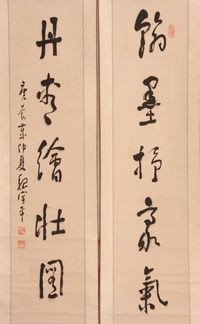 翰墨抒豪氣
丹青繪壯圖
庚辰年仲夏魏宇平